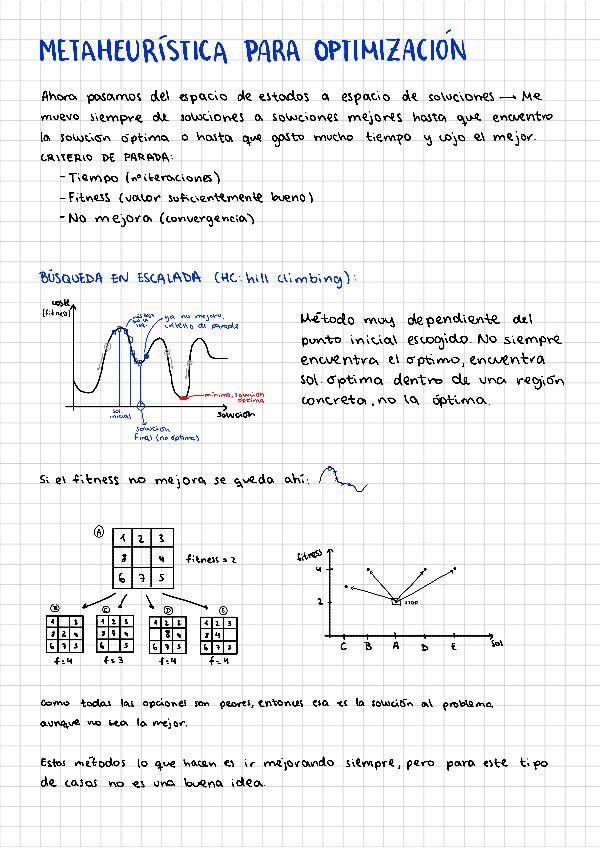 METAHEURÍSTICA PARA OPTIMIZACIÓN
Ahora pasamos del espacio de estados a espacio de soluciones → Me
muevo siempre de soluciones a soluciones mejores hasta que encuentro
la solución óptima o hasta que gasto mucho tiempo y cojo el mejor.
CRITERIO DE PARADA:
- Tiempo (nº iteraciones)
- Fitness (valor suficientemente bueno)
- No mejora (convergencia)
BÚSQUEDA EN ESCALADA (HC: hill climbing):
coste
(fitness)
ya no mejora,
criterio de parada
mínimo, solución
óptima
sol.
inicial
solución
solución
final (no óptima)
Método muy dependiente del
punto inicial escogido. No siempre
encuentra el óptimo, encuentra
sol. óptima dentro de una región
concreta, no la óptima.
Si el fitness no mejora se queda ahí:
A
1 2 3
8 4
6 7 5
fitness = 2
B C D E
1 3
8 2 4
6 7 5
f=4
1 2 3
8 7 4
6 5
f=3
1 2 3
8 4
6 7 5
f=4
1 2 3
8 4
6 7 5
f=4
fitness
4
2
STOP
C B A D E
sol
Como todas las opciones son peores, entonces esa es la solución al problema
aunque no sea la mejor.
Estos métodos lo que hacen es ir mejorando siempre, pero para este tipo
de casos no es una buena idea.